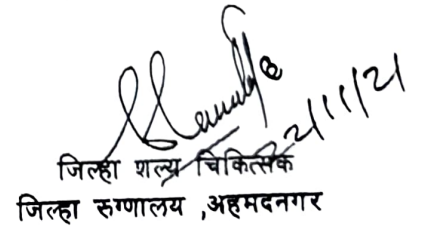 2/11/21
जिल्हा शल्य चिकित्सक
जिल्हा रुग्णालय ,अहमदनगर